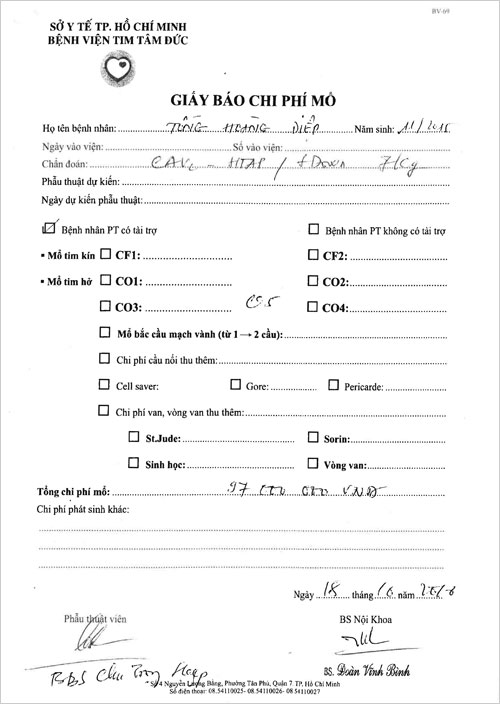 BV-09
SỞ Y TẾ TP. HỒ CHÍ MINH
BỆNH VIỆN TIM TÂM ĐỨC
GIẤY BÁO CHI PHÍ MỔ
Họ tên bệnh nhân: TỐNG HOÀNG DIỆP Năm sinh: 11/2015
Ngày vào viện: Số vào viện:
Chẩn đoán: CAVC - HTAP / +Down 7Kg
Phẫu thuật dự kiến:
Ngày dự kiến phẫu thuật:
☑ Bệnh nhân PT có tài trợ ☐ Bệnh nhân PT không có tài trợ
• Mổ tim kín ☐ CF1: ☐ CF2:
• Mổ tim hở ☐ CO1: ☐ CO2:
☐ CO3: CO5 ☐ CO4:
☐ Mổ bắc cầu mạch vành (từ 1 → 2 cầu):
☐ Chi phí cầu nối thu thêm:
☐ Cell saver: ☐ Gore: ☐ Pericarde:
☐ Chi phí van, vòng van thu thêm:
☐ St.Jude: ☐ Sorin:
☐ Sinh học: ☐ Vòng van:
Tổng chi phí mổ: 97 000 000 VNĐ
Chi phí phát sinh khác:
Ngày 18 tháng 10 năm 2016
Phẫu thuật viên BS Nội Khoa
BS. Đoàn Vĩnh Bình
Số 4 Nguyễn Lương Bằng, Phường Tân Phú, Quận 7 TP, Hồ Chí Minh
Số điện thoại: 08.54110025- 08.54110026- 08.54110027